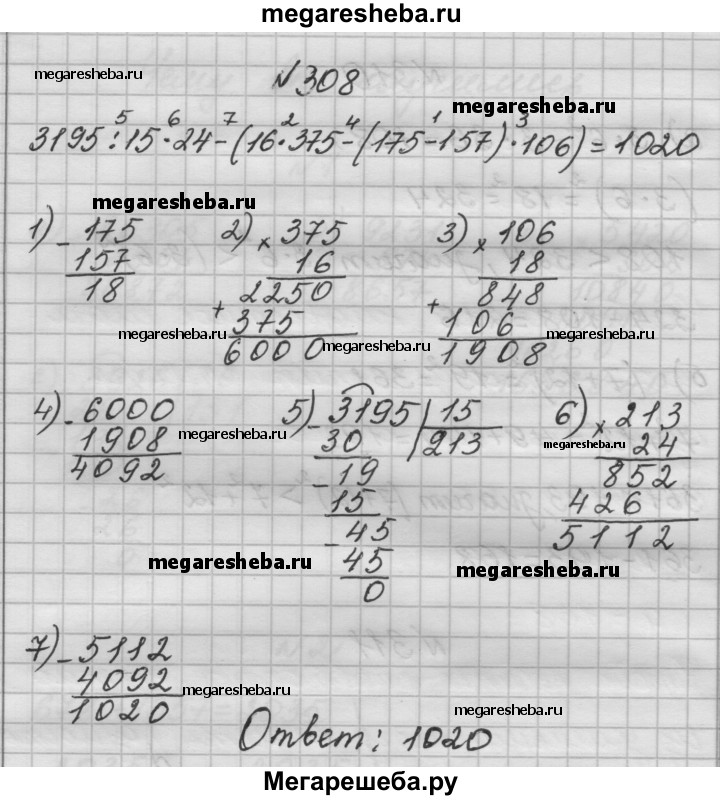 megaresheba.ru
№308
megaresheba.ru
megaresheba.ru
5 6 7 2 4 1 3
3195:15·24-(16·375-(175-157)·106)=1020
megaresheba.ru
1) - 175 2) × 375 3) × 106
157 16 18
18 2250 848
+ 375 + 106
megaresheba.ru megaresheba.ru
6000 1908
megaresheba.ru
4) - 6000 5) - 3195 | 15 6) × 213
1908 30 213 24
megaresheba.ru megaresheba.ru
4092 - 19 852
15 426
- 45 5112
megaresheba.ru 45 megaresheba.ru
0
7) - 5112
4092
megaresheba.ru
1020
megaresheba.ru
Ответ: 1020
Мегарешеба.ру